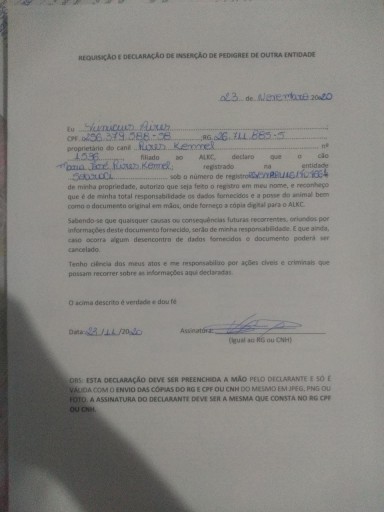 REQUISIÇÃO E DECLARAÇÃO DE INSERÇÃO DE PEDIGREE DE OUTRA ENTIDADE
23 de Novembro 2020
Eu
CPF RG
proprietário do canil Kennel nº
1596 filiado ao ALKC, declaro que o cão
Kennel, registrado na entidade
sob o número de registro
de minha propriedade, autorizo que seja feito o registro em meu nome, e reconheço
que é de minha total responsabilidade os dados fornecidos e a posse do animal bem
como o documento original em mãos, onde forneço a cópia digital para o ALKC.
Sabendo-se que quaisquer causas ou consequências futuras recorrentes, oriundos por
informações deste documento fornecido, serão de minha responsabilidade. E que ainda,
caso ocorra algum desencontro de dados fornecidos o documento poderá ser
cancelado.
Tenho ciência dos meus atos e me responsabilizo por ações cíveis e criminais que
possam recorrer sobre as informações aqui declaradas.
O acima descrito é verdade e dou fé.
Data: 23/11/2020 Assinatura:
(Igual ao RG ou CNH)
OBS: ESTA DECLARAÇÃO DEVE SER PREENCHIDA A MÃO PELO DECLARANTE E SÓ É
VÁLIDA COM O ENVIO DAS CÓPIAS DO RG E CPF OU CNH DO MESMO EM JPEG, PNG OU
FOTO. A ASSINATURA DO DECLARANTE DEVE SER A MESMA QUE CONSTA NO RG CPF
OU CNH.